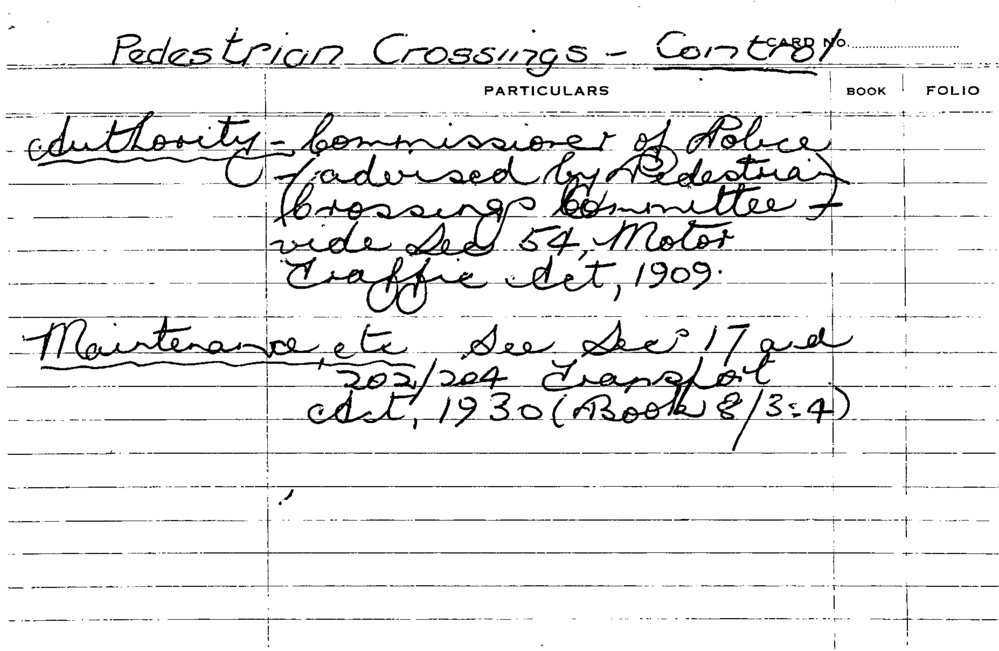 Pedestrian Crossings - Control
CARD No.
PARTICULARS BOOK FOLIO
Authority - Commissioner of Police
- (advised by Pedestrian
Crossings Committee -
vide Sec 54, Motor
Traffic Act, 1909.
Maintenance, etc See Secs 17 and
202/204 Transport
Act, 1930 (Book 8/3:4)